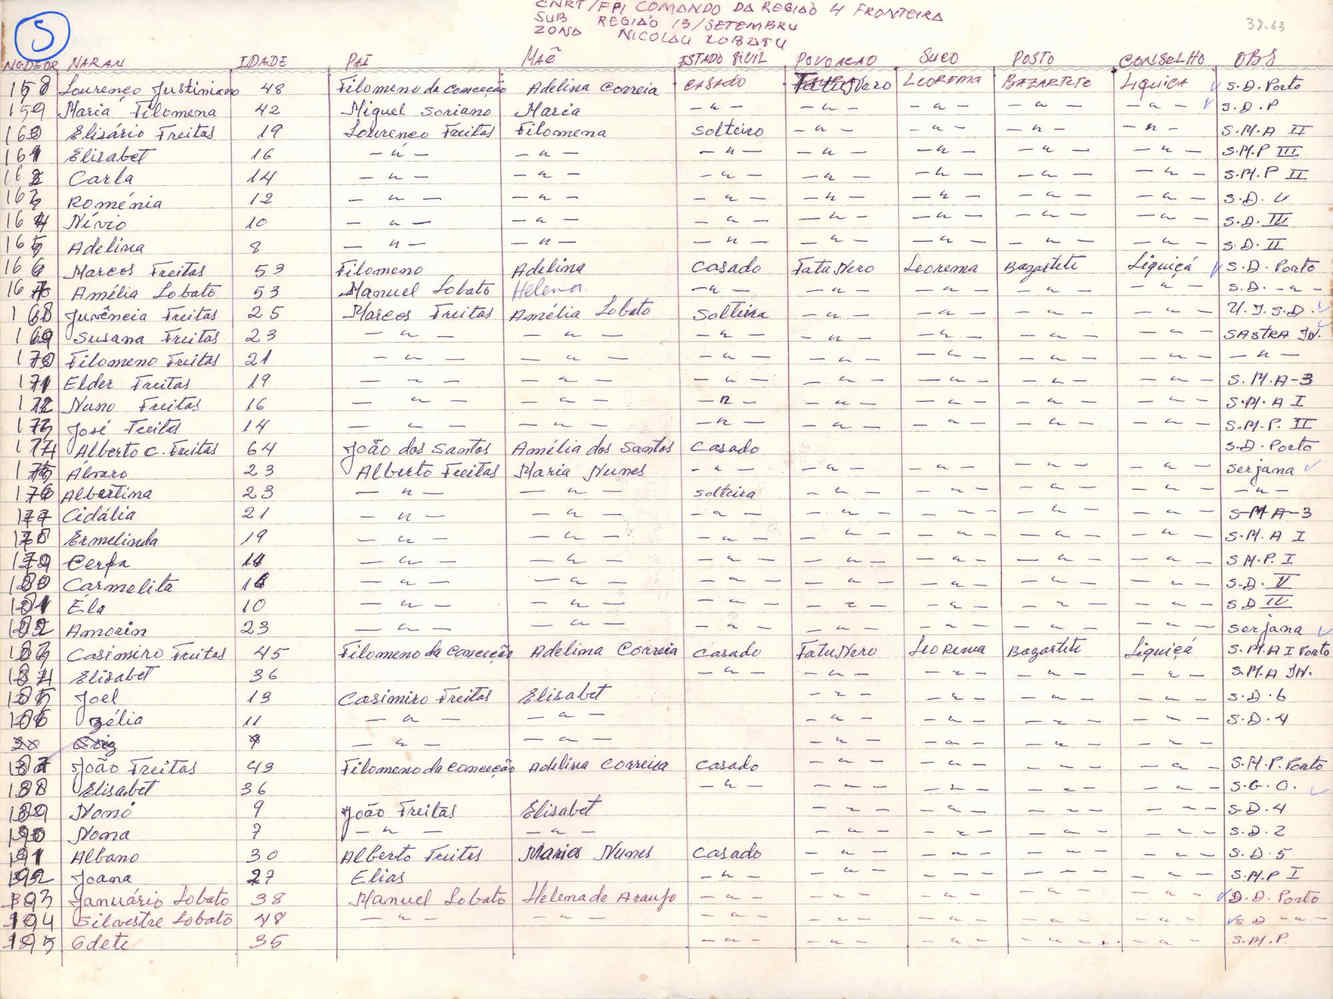 5
CNRT/FPI COMANDO DA REGIÃO 4 FRONTEIRA
SUB REGIÃO 13/SETEMBRU
ZONA NICOLAU LOBATU
32.63
NARAN IDADE PAI MAÊ ESTADO SIVIL POVOACÃO SUCO POSTO CONSELHO OBS
158 Lourenço Justiniano 48 Filomeno da Conceição Adelina Correia CASADO FatuNero LEOREMA BAZARTETE LIQUICA S.D. Porto
159 Maria Filomena 42 Miguel Soriano Maria — " — — " — — " — — " — — " — S.D.P
160 Elizário Freitas 19 Lourenco Freitas Filomena Solteiro — " — — " — — " — — " — S.M.A II
161 Elisabet 16 — " — — " — — " — — " — — " — — " — — " — S.M.P III
162 Carla 14 — " — — " — — " — — " — — " — — " — — " — S.M.P II
163 Roménia 12 — " — — " — — " — — " — — " — — " — — " — S.D. V
164 Nívio 10 — " — — " — — " — — " — — " — — " — — " — S.D. III
165 Adelina 8 — " — — " — — " — — " — — " — — " — — " — S.D. II
166 Marcos Freitas 53 Filomeno Adelina Casado FatuNero Leorema Bazartete Liquiçá S.D. Porto
167 Amélia Lobato 53 Manuel Lobato Helena — " — — " — — " — — " — — " — S.D. — " —
168 Juvência Freitas 25 Marcos Freitas Amélia Lobato Solteira — " — — " — — " — — " — U.I.S.D.
169 Susana Freitas 23 — " — — " — — " — — " — — " — — " — SASTRA IN.
170 Filomeno Freitas 21 — " — — " — — " — — " — — " — — " — — " — — " —
171 Elder Freitas 19 — " — — " — — " — — " — — " — — " — — " — S.M.A-3
172 Nuno Freitas 16 — " — — " — — " — — " — — " — — " — — " — S.M.A I
173 José Freitas 14 — " — — " — — " — — " — — " — — " — — " — S.M.P. II
174 Alberto C. Freitas 64 João dos Santos Amélia dos Santos Casado S.D. Porto
175 Álvaro 23 Alberto Freitas Maria Nunes — " — — " — — " — — " — — " — Serjana
176 Albertina 23 — " — — " — Solteira — " — — " — — " — — " — — " —
177 Cidália 21 — " — — " — — " — — " — — " — — " — — " — S-M A-3
178 Ermelinda 19 — " — — " — — " — — " — — " — — " — — " — S.M.A I
179 14 — " — — " — — " — — " — — " — — " — — " — S.M.P. I
180 Carmelita 16 — " — — " — — " — — " — — " — — " — — " — S.D. V
181 Ela 10 — " — — " — — " — — " — — " — — " — — " — S.D IV
182 Amorin 23 — " — — " — — " — — " — — " — — " — — " — Serjana
183 Casimiro Freitas 45 Filomeno da Conceição Adelina Correia Casado FatuNero Leorema Bazartete Liquiçá S.M.A I Porto
184 Elisabet 36 — " — — " — — " — — " — — " — S.M.A IN.
185 Joel 13 Casimiro Freitas Elisabet — " — — " — — " — — " — S.D. 6
186 Zélia 11 — " — — " — — " — — " — — " — — " — S.D. 4
— " — — " — — " — — " — — " — — " —
187 João Freitas 43 Filomeno da Conceição Adelina Correia Casado — " — — " — — " — — " — S.M.P. Porto
188 Elisabet 36 — " — — " — — " — — " — — " — S.G.O.
189 Nomó 9 João Freitas Elisabet — " — — " — — " — — " — S.D. 4
190 Noma 7 — " — — " — — " — — " — — " — — " — S.D. 2
191 Albano 30 Alberto Freites Maria Nunes Casado — " — — " — — " — — " — S.D. 5
192 Joana 27 Elias — " — — " — — " — — " — — " — S.M.P I
193 Januário Lobato 38 Manuel Lobato Helena de Araujo — " — — " — — " — — " — — " — D.D. Porto
194 Silvestre Lobato 48 — " — — " — — " — — " — — " — — " — — " — S D — " —
195 Odete 35 — " — — " — — " — — " — — " — S.M.P